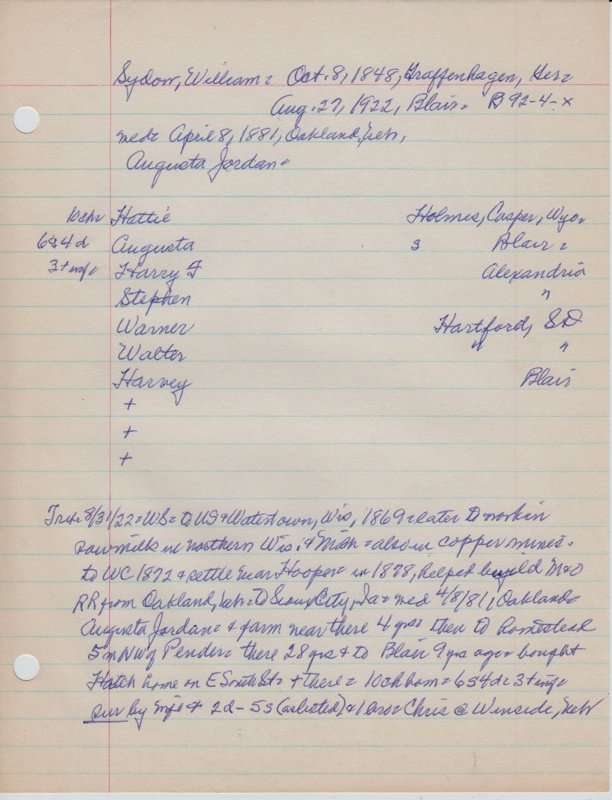 Sydow, William = Oct. 8, 1848, Graffenhagen, Ger =
Aug. 27, 1922, Blair = B 92-4-x
med = April 8, 1881, Oakland, Neb,
Augusta Jordan =
10 chn Hattie Holmes, Casper, Wyo =
6s4d Augusta s Blair =
3 + inf = Harry F Alexandria
Stephen "
Warner Hartford, SD
Walter " "
Harvey Blair
+
+
+
Trib 8/31/22 = WS = to US + Watertown, Wis, 1869 = later to work in
sawmills in northern Wis, + Mich = also in copper mines =
to WC 1872 + settle near Hooper = in 1878, helped build M+O
RR from Oakland, Neb = to Sioux City, Ia = med 4/8/81, Oakland =
Augusta Jordan = + farm near there 4 yrs = then to homestead
5 m NW of Pender = there 28 yrs + to Blair 9 yrs ago = bought
Hatch home on E South St = + there = 10 ch born = 6s4d = 3 + inf =
sur by wife + 2d - 5s (as listed) = 1 bro = Chris @ Winside, Neb